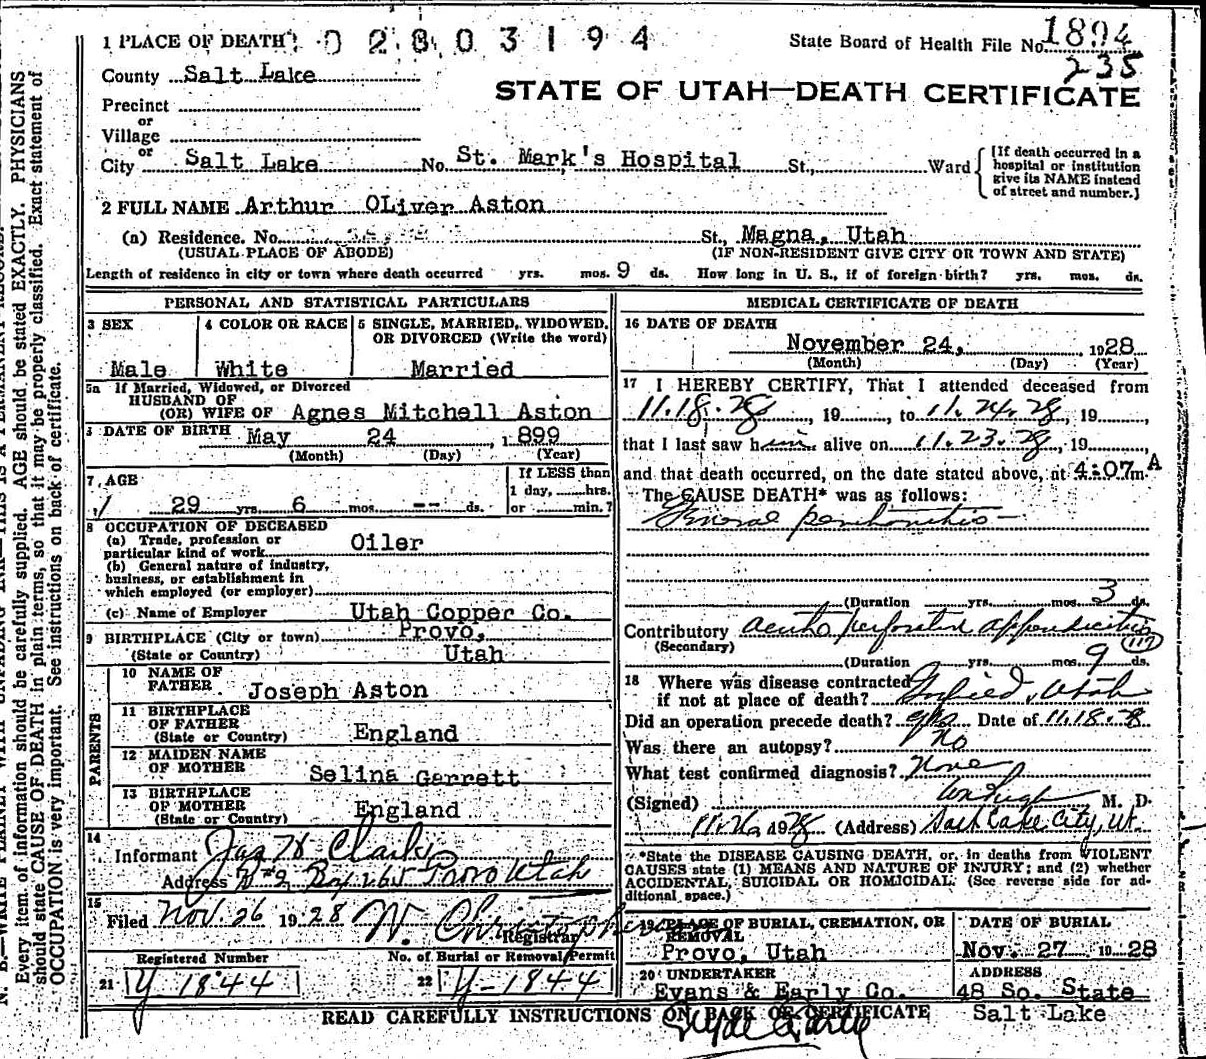 1 PLACE OF DEATH 0 2 8 0 3 1 9 4
State Board of Health File No. 1894
235
County Salt Lake
STATE OF UTAH—DEATH CERTIFICATE
Precinct
or
Village
or
City Salt Lake No. St. Mark's Hospital St., Ward
[If death occurred in a hospital or institution give its NAME instead of street and number.]
2 FULL NAME Arthur OLiver Aston
(a) Residence. No. St., Magna, Utah
(USUAL PLACE OF ABODE) (IF NON-RESIDENT GIVE CITY OR TOWN AND STATE)
Length of residence in city or town where death occurred yrs. mos. 9 ds. How long in U. S., if of foreign birth? yrs. mos. ds.
PERSONAL AND STATISTICAL PARTICULARS
3 SEX
Male
4 COLOR OR RACE
White
5 SINGLE, MARRIED, WIDOWED, OR DIVORCED (Write the word)
Married
5a If Married, Widowed, or Divorced
HUSBAND OF
(OR) WIFE OF Agnes Mitchell Aston
DATE OF BIRTH May 24, 1899
(Month) (Day) (Year)
7 AGE
29 yrs. 6 mos. -- ds.
If LESS than
1 day, hrs.
or min.?
8 OCCUPATION OF DECEASED
(a) Trade, profession or
particular kind of work Oiler
(b) General nature of industry,
business, or establishment in
which employed (or employer)
(c) Name of Employer Utah Copper Co.
9 BIRTHPLACE (City or town) Provo,
(State or Country) Utah
PARENTS
10 NAME OF
FATHER Joseph Aston
11 BIRTHPLACE
OF FATHER
(State or Country) England
12 MAIDEN NAME
OF MOTHER Selina Garrett
13 BIRTHPLACE
OF MOTHER
(State or Country) England
14
Informant Jas H Clark
Address #2 Box 265 Provo Utah
15
Filed Nov. 26 1928 W. Christopherson
Registrar
Registered Number
21 Y 1844
No. of Burial or Removal Permit
22 Y-1844
MEDICAL CERTIFICATE OF DEATH
16 DATE OF DEATH
November 24, 1928
(Month) (Day) (Year)
17 I HEREBY CERTIFY, That I attended deceased from
11.18.28, 19, to 11.24.28, 19,
that I last saw him alive on 11.23.28, 19
and that death occurred, on the date stated above, at 4:07 m A
The CAUSE DEATH* was as follows:
General peritonitis
(Duration yrs. mos. 3 ds.
Contributory acute perforated appendicitis
(Secondary) (117)
(Duration yrs. mos. 9 ds.
18 Where was disease contracted
if not at place of death? Garfield, Utah
Did an operation precede death? yes Date of 11.18.28
Was there an autopsy? No
What test confirmed diagnosis? None
(Signed) M. D.
11.26 1928 (Address) Salt Lake City, Ut.
*State the DISEASE CAUSING DEATH, or, in deaths from VIOLENT
CAUSES state (1) MEANS AND NATURE OF INJURY; and (2) whether
ACCIDENTAL, SUICIDAL OR HOMICIDAL. (See reverse side for ad-
ditional space.)
19 PLACE OF BURIAL, CREMATION, OR
REMOVAL
Provo, Utah
DATE OF BURIAL
Nov. 27 1928
20 UNDERTAKER
Evans & Early Co.
ADDRESS
48 So. State
Salt Lake
READ CAREFULLY INSTRUCTIONS ON BACK OF CERTIFICATE
Every item of information should be carefully supplied. AGE should be stated EXACTLY. PHYSICIANS
should state CAUSE OF DEATH in plain terms, so that it may be properly classified. Exact statement of
OCCUPATION is very important. See instructions on back of certificate.